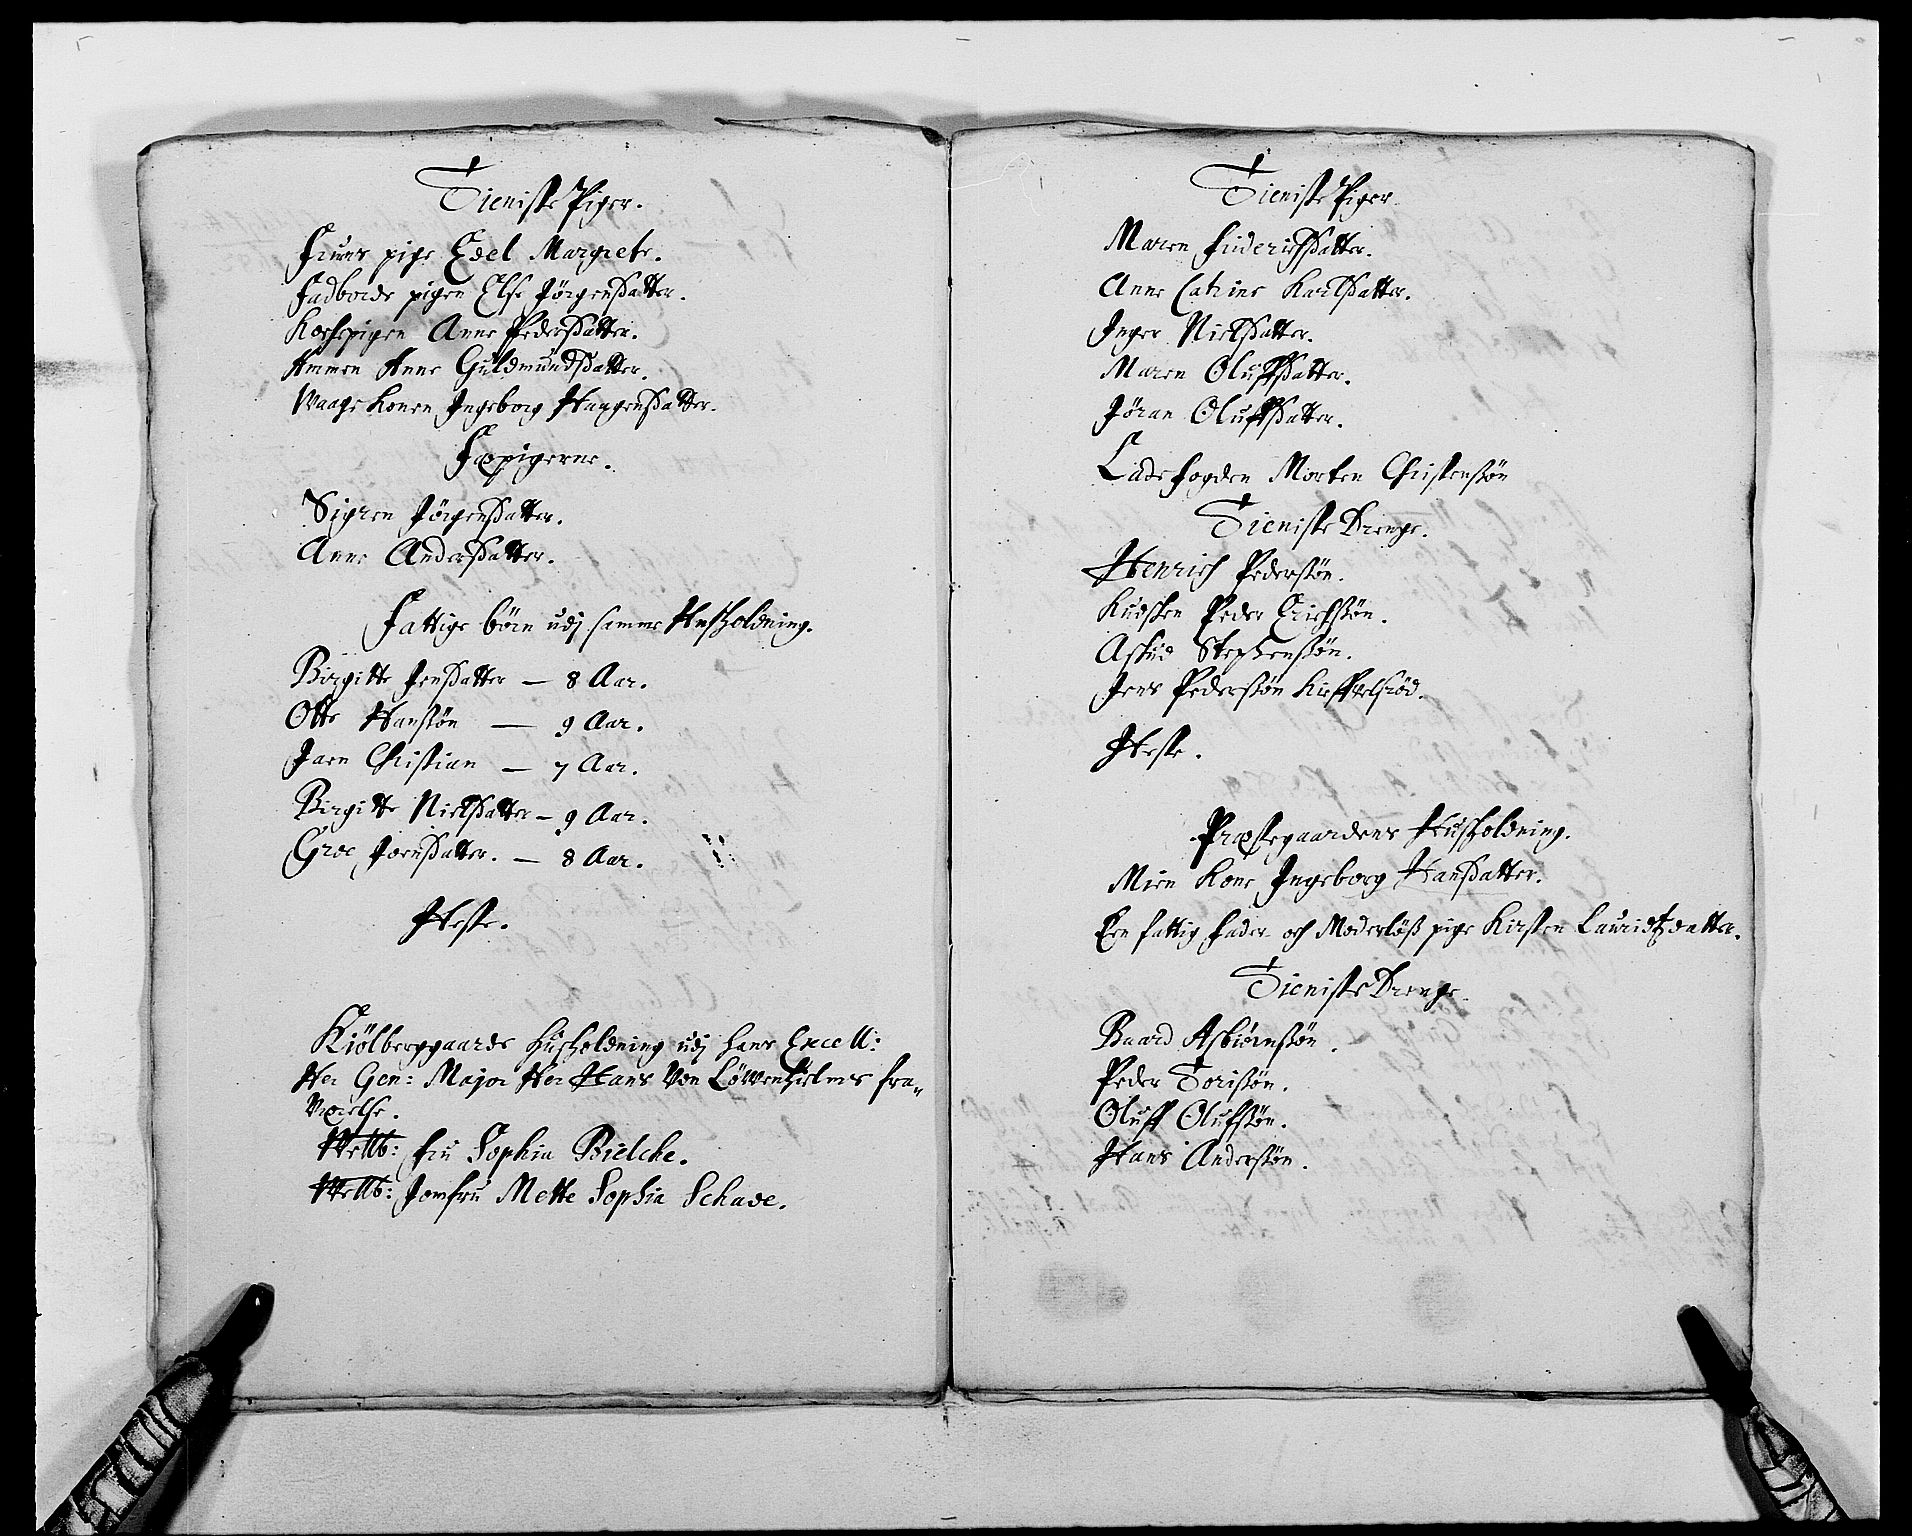 Tieniste Piger.
Frues pige Edel Margrete.
Fadbords pigen Else Jörgensdatter.
Kockepigen Anne Pedersdatter.
Ammen Anne Guldmundsdatter.
Waage Konen Ingeborg Haagensdatter.
Fæpigerne.
Sigren Jörgensdatter.
Anne Andersdatter.
Fattige börn udj samme Husholdning.
Birgitte Jensdatter — 8 Aar.
Otte Hanssön — 9 Aar.
Jaen Christian — 7 Aar.
Birgitte Nielsdatter — 9 Aar.
Groe Joensdatter. — 8 Aar.
Heste.
Kiölberggaards Husholdning udj hans Excell:
Her Gen: Major Her Hans Von Löwenhielmes fra„
Værelse.
Welb: fru Sophia Bielche.
Welb: Jomfru Mette Sophia Schade.
Tieniste Piger
Maren Friderichsdatter.
Anne Catrine Karlsdatter.
Inger Nielsdatter.
Maren Oluffsdatter.
Jöran Oluffsdatter.
Ladefogden Morten Christenssön
Tieniste Drenge.
Henrich Pederssön.
Kudsken Peder Erichssön.
Stephenssön.
Jens Pederssön
Heste.
Præstegaardens Husholdning.
Mien Kone Ingeborg Hansdatter.
Een fattig fader och Moderlöß pige Kirsten Lauridtzdatter.
Tieniste Drenge.
Baard Asbiörnssön.
Peder Torissön.
Oluff Olufssön.
Hans Anderssön.